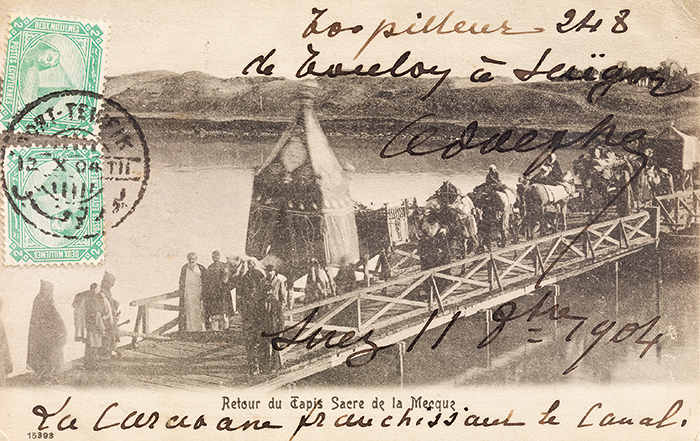 DEUX MILLIEMES
POSTES EGYPTIENNES
PORT-TEWFIK
12 - X 04
DEUX MILLIEMES
Torpilleur 248
de Toulon à Saïgon
Suez 11 8bre 1904
Retour du Tapis Sacre de la Mecque
La Caravane franchissant le Canal.
15393